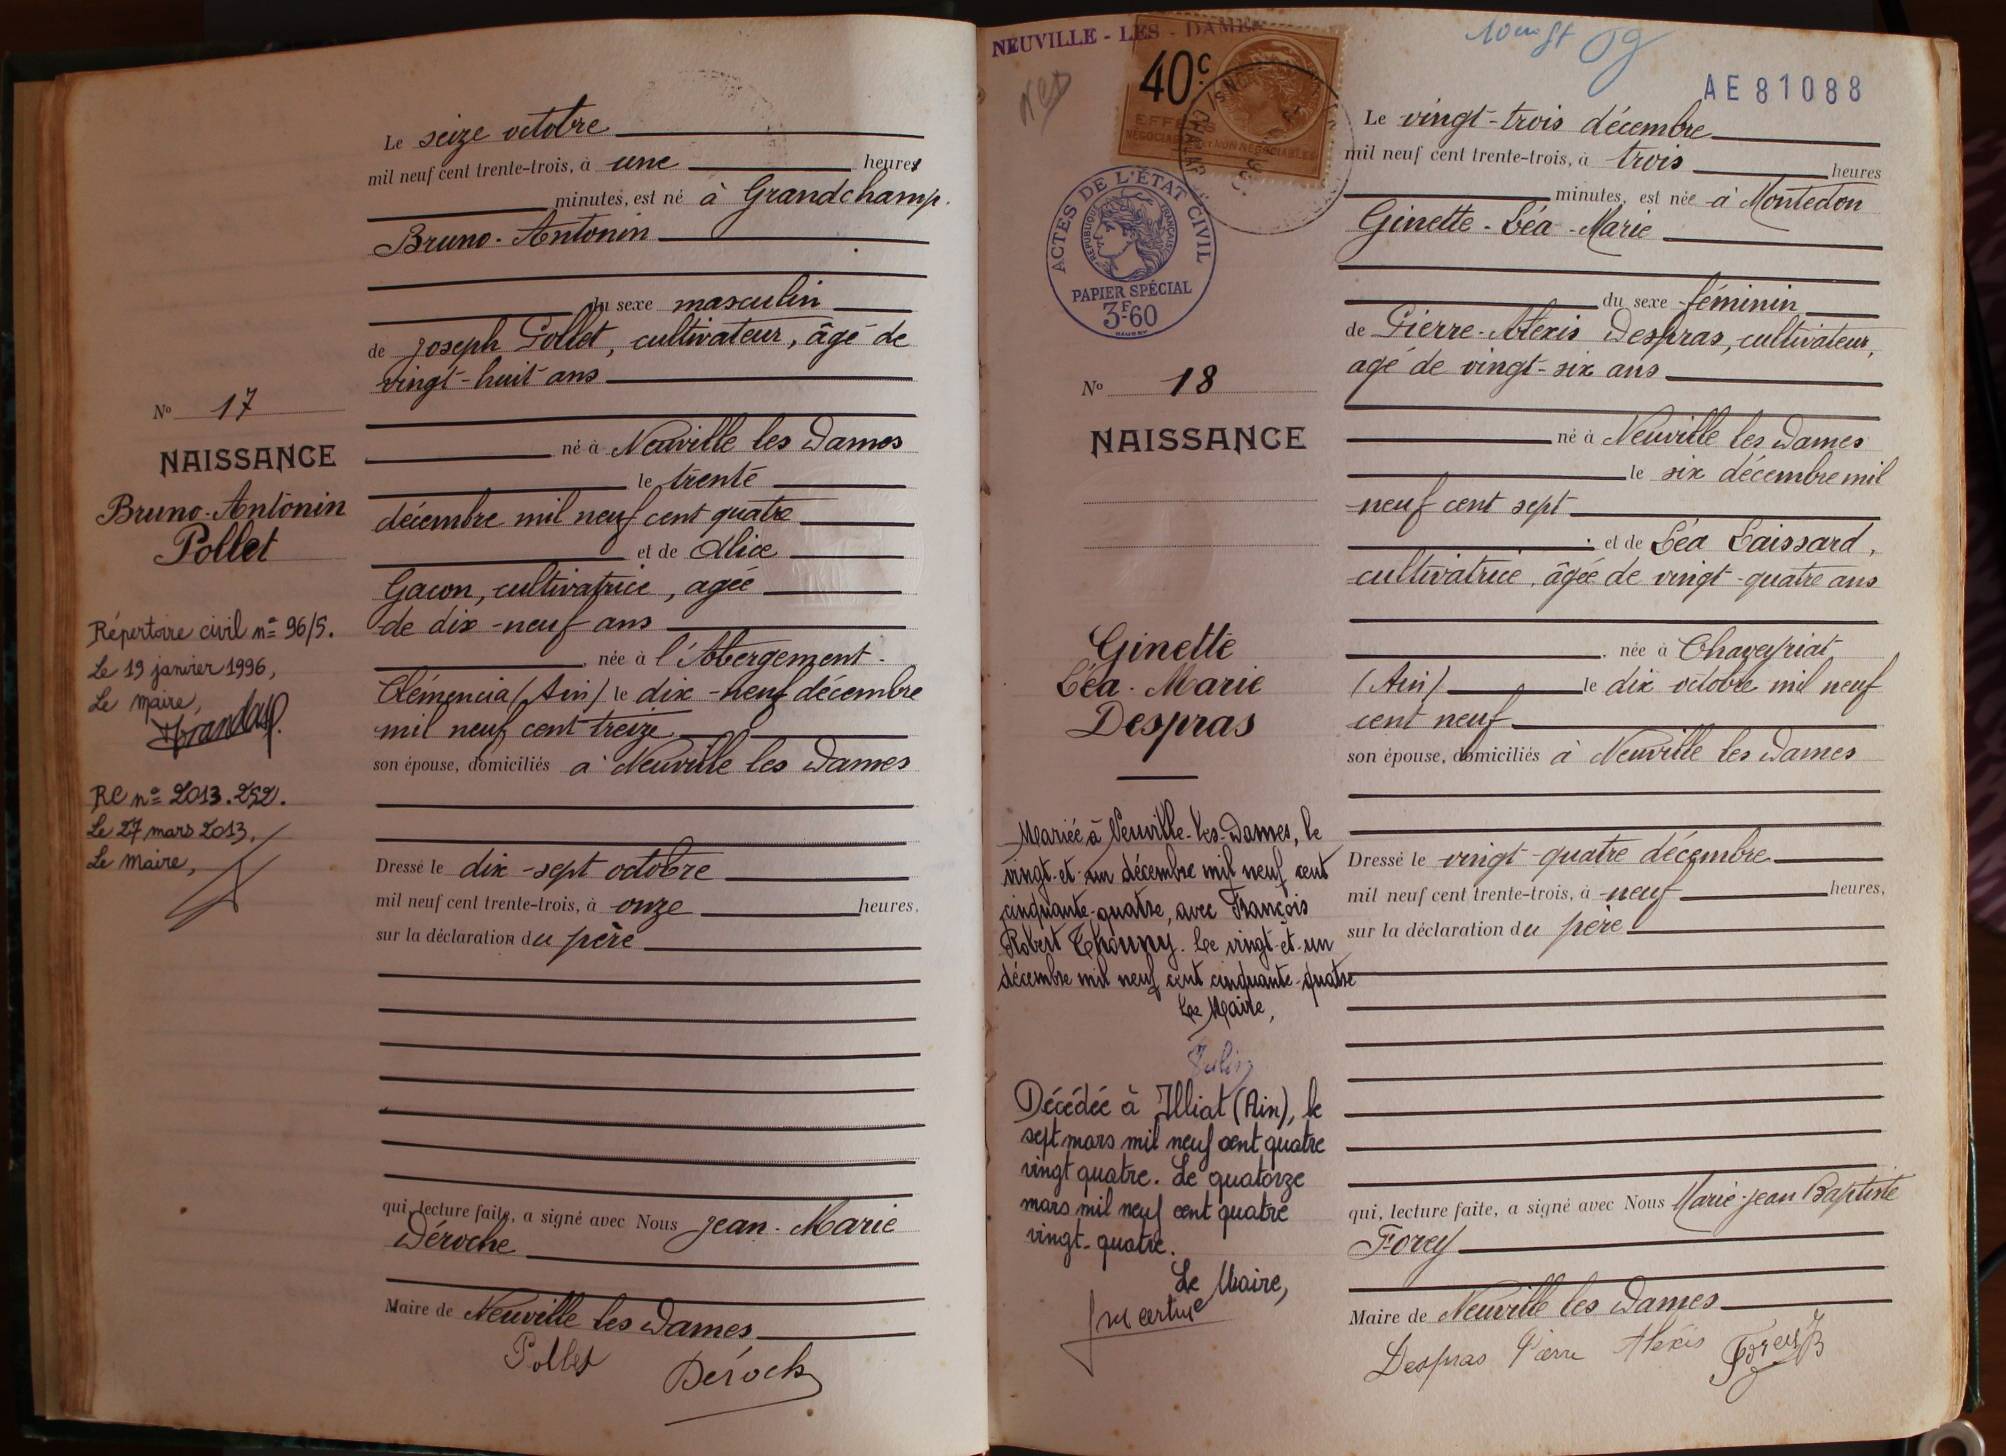 Le seize octobre
mil neuf cent trente-trois, à une heures
minutes, est né à Grandchamp.
Bruno-Antonin
du sexe masculin
de Joseph Pollet, cultivateur, âgé de
vingt-huit ans
né à Neuville les Dames
le trente
décembre mil neuf cent quatre
et de Alice
Gacon, cultivatrice, agée
de dix-neuf ans
née à l'Abergement-
Clémencia (Ain) le dix-neuf décembre
mil neuf cent treize
son épouse, domiciliés à Neuville les Dames
Dressé le dix-sept octobre
mil neuf cent trente-trois, à onze heures,
sur la déclaration du père
qui, lecture faite, a signé avec Nous Jean-Marie
Déroche
Maire de Neuville les Dames
Pollet
Déroch
No 17
NAISSANCE
Bruno-Antonin
Pollet
Répertoire civil nº 96/5.
Le 19 janvier 1996,
Le Maire,
RC nº 2013.252.
Le 27 mars 2013.
Le Maire,
NEUVILLE-LES-DAMES
40c
EFFETS
NÉGOCIABLES ET NON NÉGOCIABLES
ACTES DE L'ÉTAT CIVIL
RÉPUBLIQUE FRANÇAISE
PAPIER SPÉCIAL
3F60
No 18
NAISSANCE
Ginette
Léa-Marie
Despras
Mariée à Neuville-les-Dames, le
vingt-et-un décembre mil neuf cent
cinquante-quatre, avec François
Robert Thouny. Le vingt-et-un
décembre mil neuf cent cinquante-quatre
Le Maire,
Décédée à Illiat (Ain), le
sept mars mil neuf cent quatre
vingt quatre. Le quatorze
mars mil neuf cent quatre
vingt-quatre.
Le Maire,
AE 81088
Le vingt-trois décembre
mil neuf cent trente-trois, à trois heures
minutes, est née à Montedon
Ginette-Léa-Marie
du sexe féminin
de Pierre-Alexis Despras, cultivateur,
agé de vingt-six ans
né à Neuville les Dames
le six décembre mil
neuf cent sept
et de Léa Laissard,
cultivatrice, âgée de vingt-quatre ans
née à Chaveyriat,
(Ain) le dix octobre mil neuf
cent neuf
son épouse, domiciliés à Neuville les Dames
Dressé le vingt-quatre décembre
mil neuf cent trente-trois, à neuf heures,
sur la déclaration du père
qui, lecture faite, a signé avec Nous Marie-Jean Baptiste
Forey
Maire de Neuville les Dames
Despras Pierre Alexis Forey JB